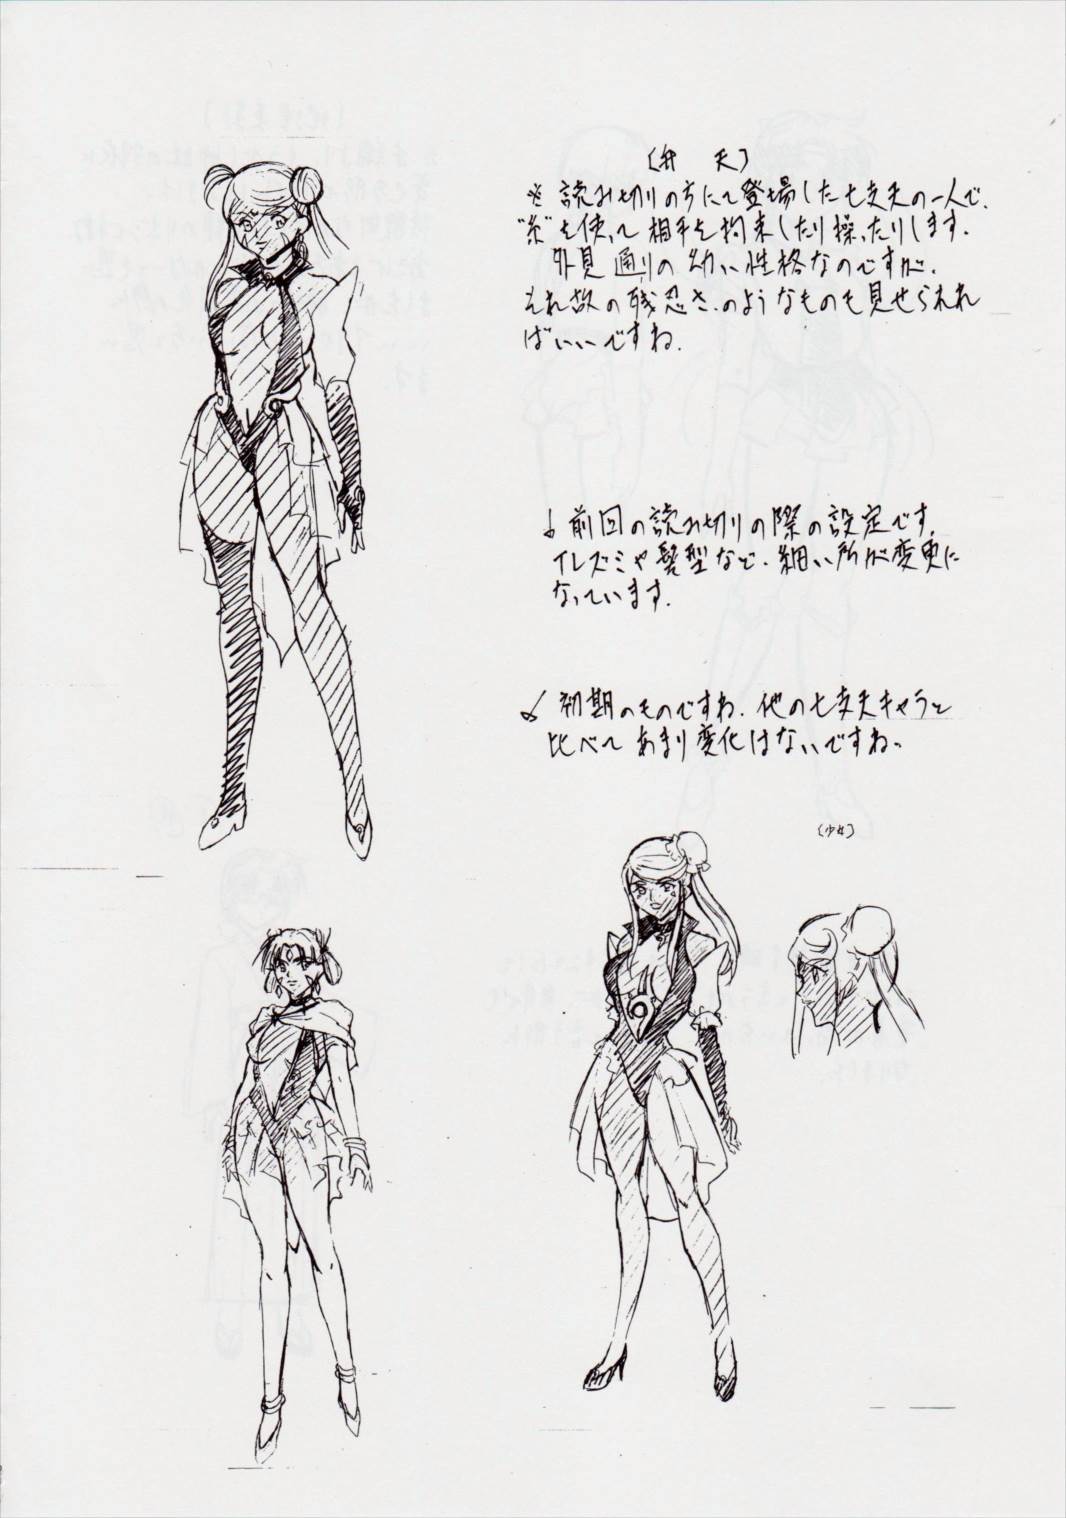 〔弁 天〕
※ 読み切りの方にて登場した七支天の一人で、
"糸"を使って相手を拘束したり操ったりします。
外見通りの幼い性格なのですが、
それ故の残忍さ、のようなものも見せられれ
ばいいですね。
↓前回の読み切りの際の設定です。
イレズミや髪型など、細い所が変更に
なっています。
初期のものですね。他の七支天キャラと
比べてあまり変化はないですね。
〔少女〕